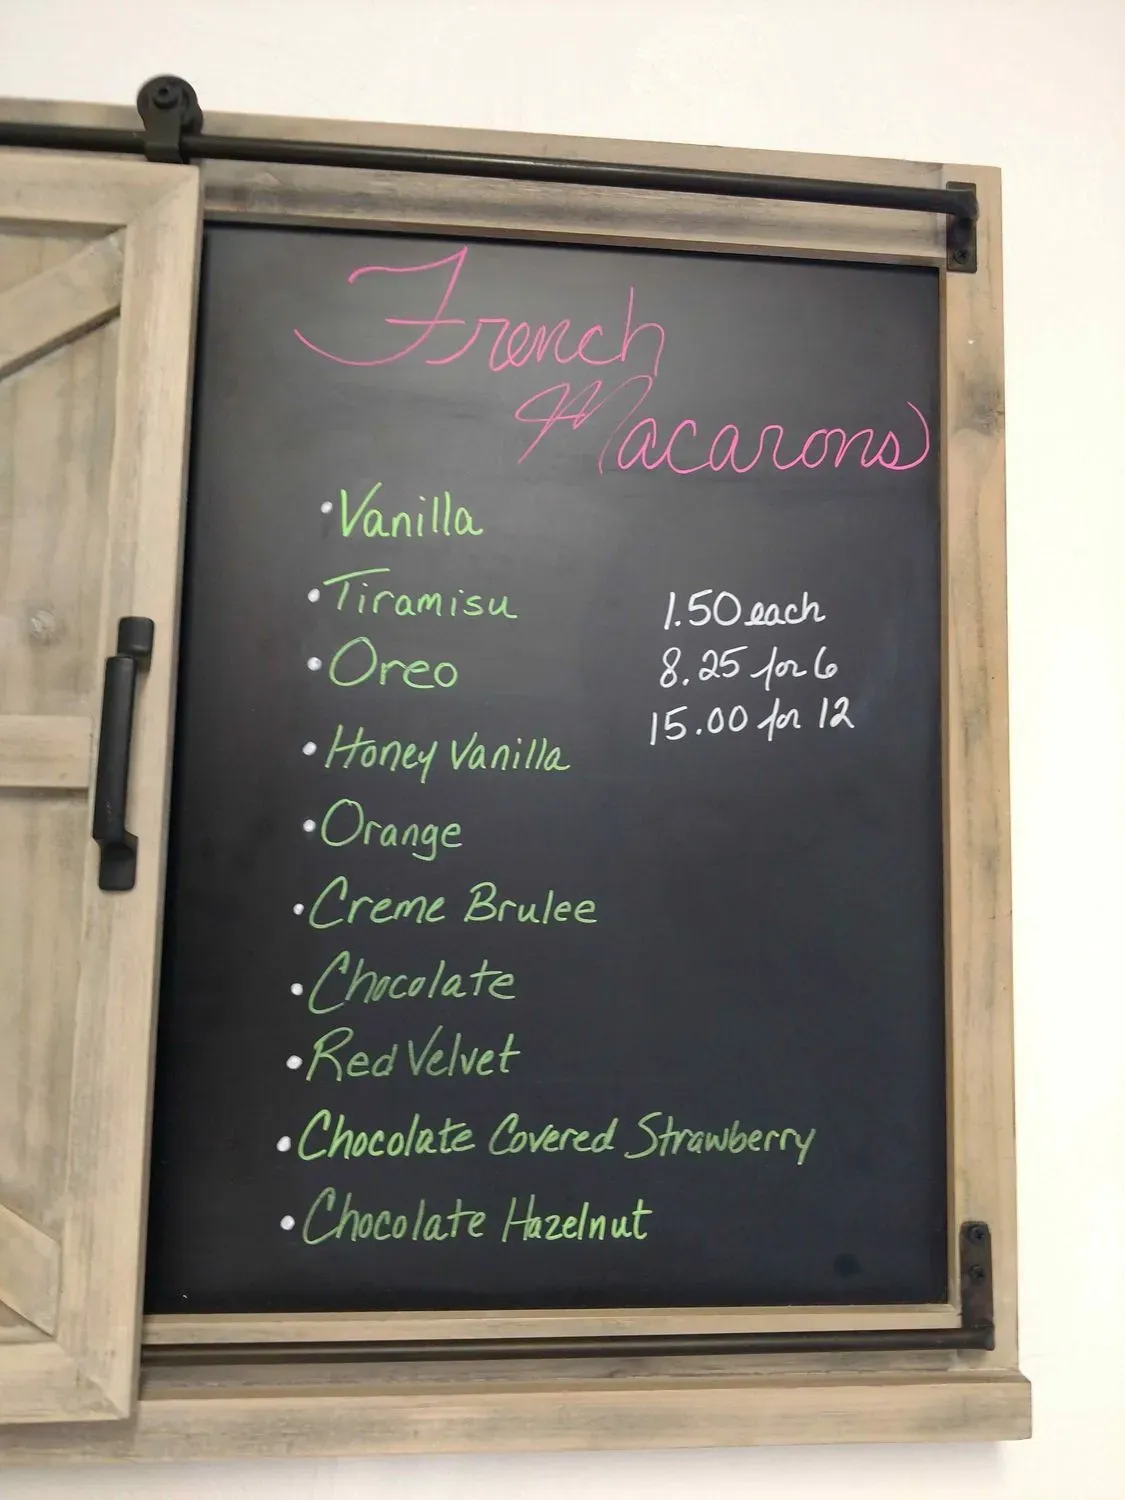 French
Macarons
• Vanilla
• Tiramisu
• Oreo
• Honey Vanilla
• Orange
• Creme Brulee
• Chocolate
• Red Velvet
• Chocolate Covered Strawberry
• Chocolate Hazelnut
1.50 each
8.25 for 6
15.00 for 12